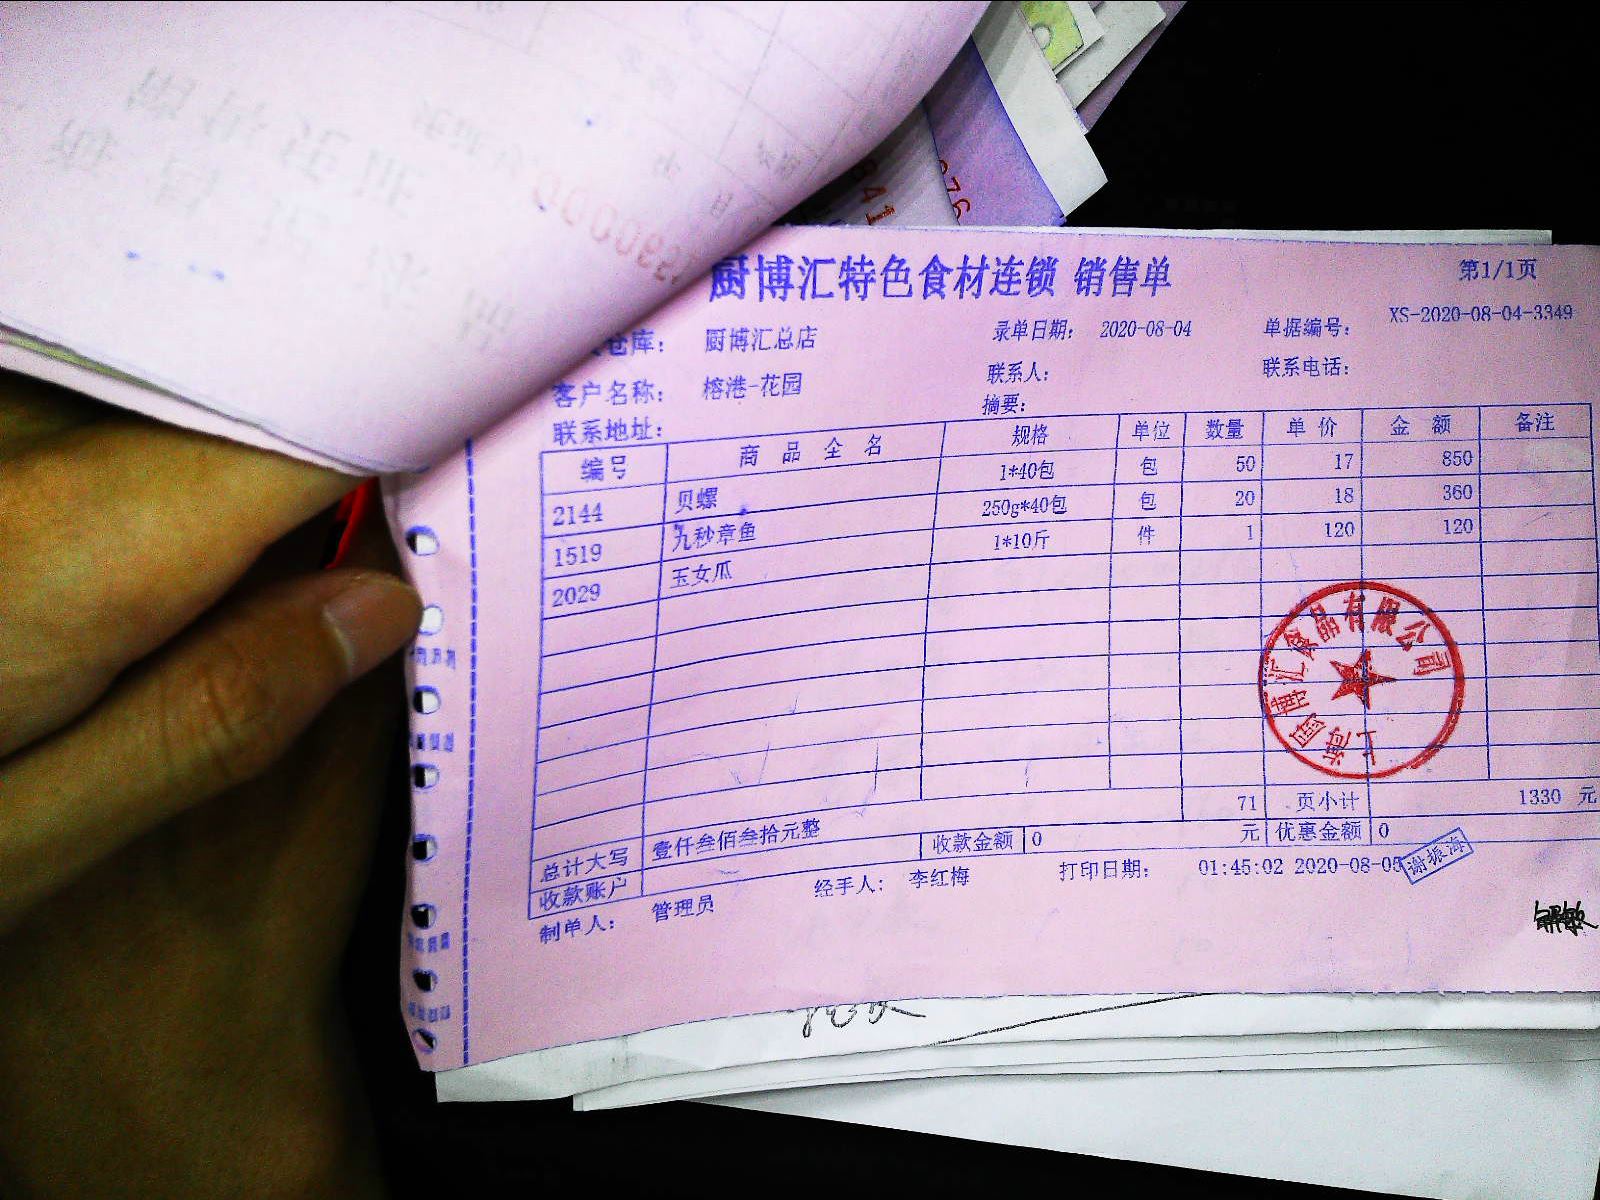 厨博汇特色食材连锁 销售单
第1/1页
仓库： 厨博汇总店 录单日期： 2020-08-04 单据编号： XS-2020-08-04-3349
客户名称： 榕港-花园 联系人： 联系电话：
联系地址： 摘要：
编号 商品全名 规格 单位 数量 单价 金额 备注
2144 贝螺 1*40包 包 50 17 850
1519 九秒章鱼 250g*40包 包 20 18 360
2029 玉女瓜 1*10斤 件 1 120 120
71 页小计 1330 元
总计大写 壹仟叁佰叁拾元整 收款金额 0 元 优惠金额 0
收款账户
制单人： 管理员 经手人： 李红梅 打印日期： 01:45:02 2020-08-05
谢振海
上海厨博汇食品有限公司
841
976